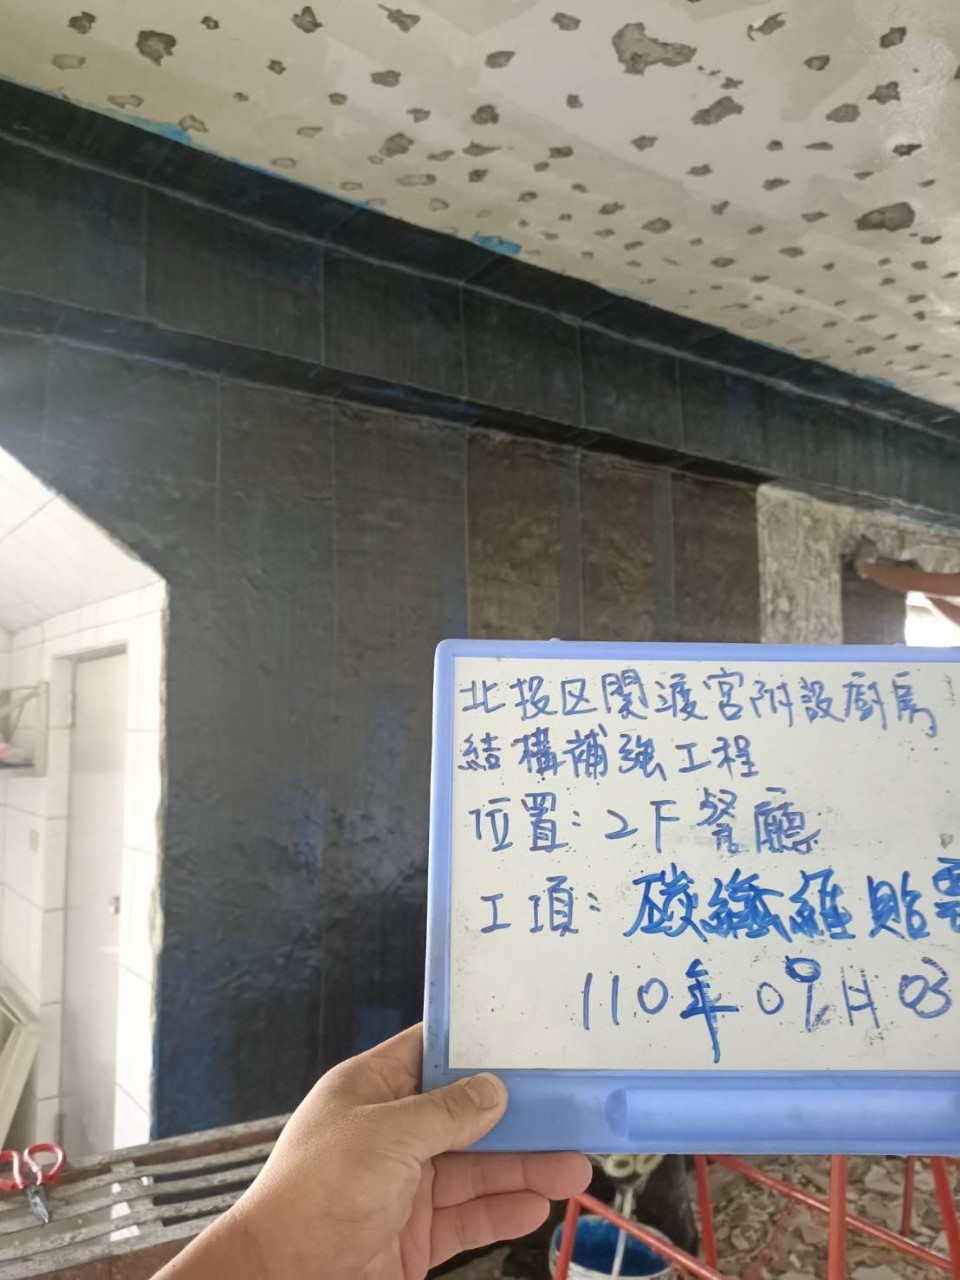 北投区関渡宮附設廚房
結構補強工程
位置:2F餐廳
工項:碳纖維貼
110年09月03